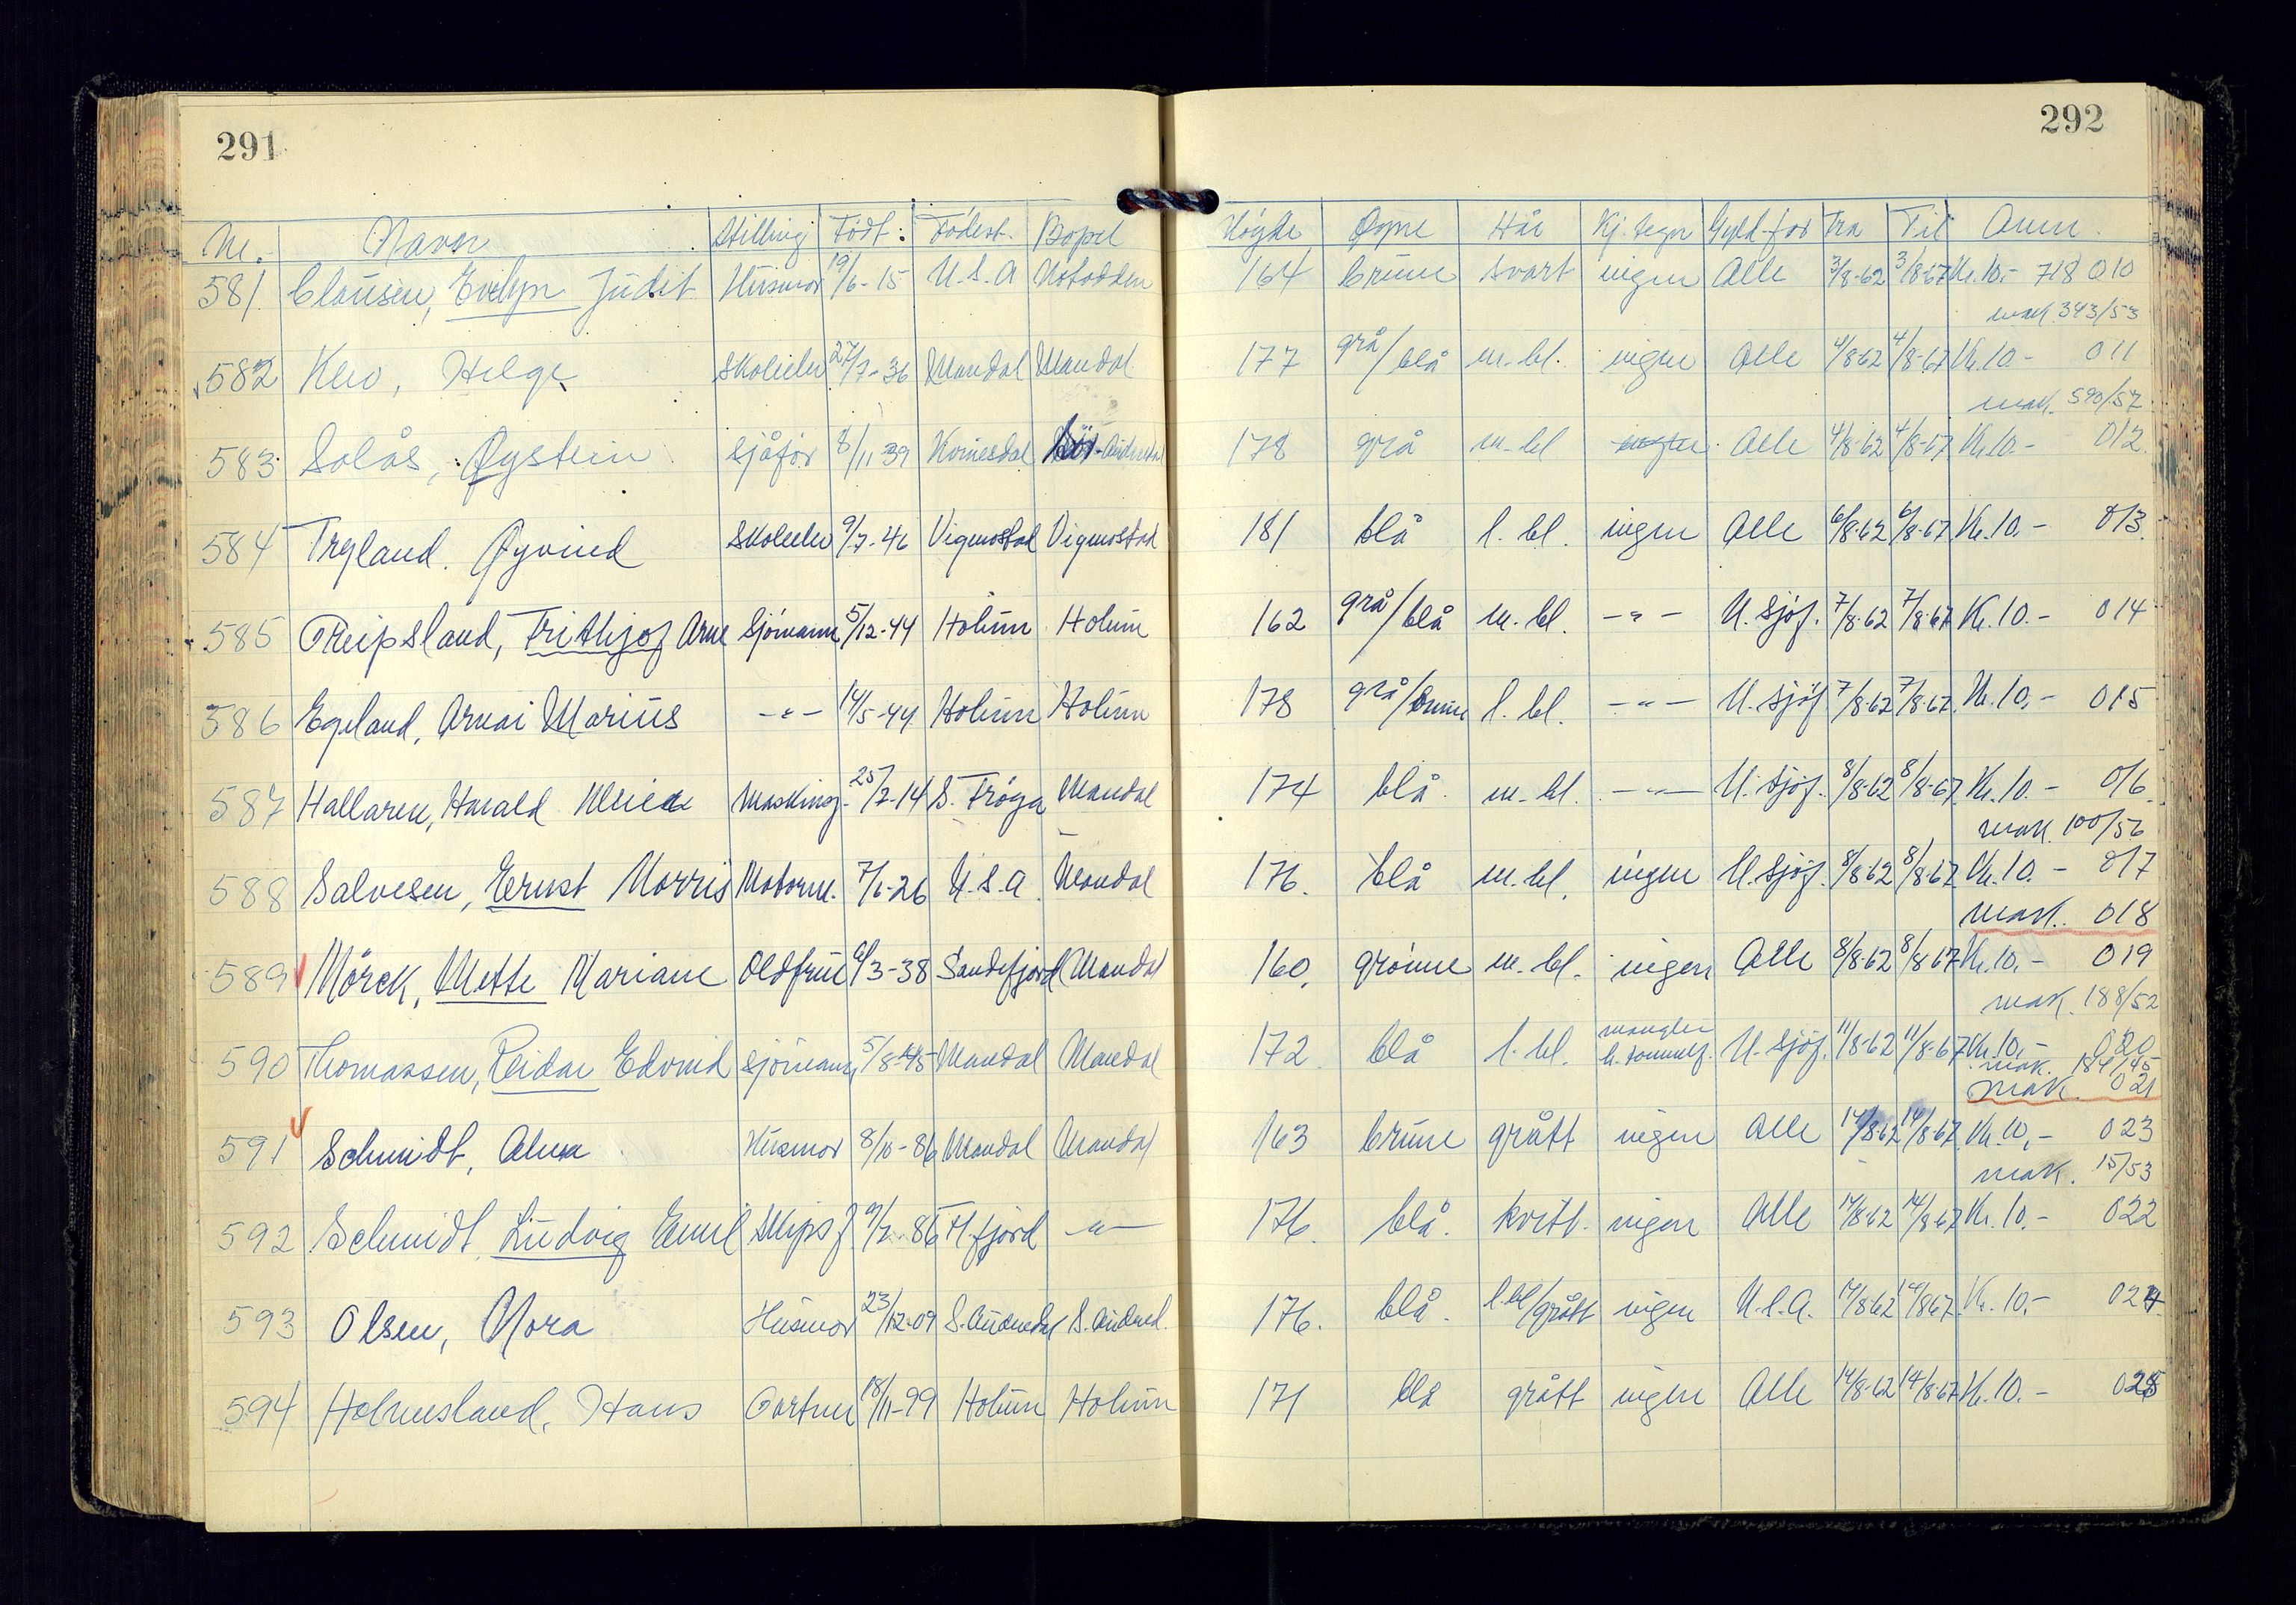 291
292
Nr. Navn Stilling Født: Födest. Bopel Høyde Øyne Hår Kj. tegn Gyld. for Fra Til Anm.
581 Clausen, Evelyn Judit Husmor 19/6-15 U.S.A Notodden 164 brune svart ingen Alle 3/8-62 3/8-67 Kr. 10.- 718 010
mak. 343/53
582 Klev, Helge Skoleelev 27/7-36 Mandal Mandal 177 grå/blå m. bl. ingen Alle 4/8-62 4/8-67 Kr. 10.- 011
mak. 590/57
583 Solås, Øystein sjåför 8/11-39 Kvinesdal Sör-Audnedal 178 grå m-bl ingen Alle 4/8-62 4/8-67 Kr. 10.- 012
584 Trygland. Øyvind Skoleelev 9/7-46 Vigmostad Vigmostad 181 blå l. bl. ingen Alle 6/8-62 6/8-67 Kr. 10.- 013
585 Reipsland, Frithjof Arne Sjömann 5/12-44 Holum Holum 162 grå/blå m. bl. -"- U. sjöf. 7/8-62 7/8-67 Kr. 10.- 014
586 Egeland, Arnai Marius -"- 14/5-44 Holum Holum 178 grå/brune l. bl. -"- U. sjöf. 7/8-62 7/8-67 Kr. 10.- 015
587 Hallaren, Harald Maskinsj. 25/7-14 S. Fröya Mandal 174 blå m-bl. -"- U. sjöf. 8/8-62 8/8-67 Kr. 10.- 016
mak. 100/56
588 Salvesen, Ernst Norris Motorm. 7/6-26 U.S.A. Mandal 176. blå m. bl. ingen U. sjöf. 8/8-62 8/8-67 Kr. 10.- 017
mak. 018
589 Mörck, Mette Mariane Oldfrue 9/3-38 Sandefjord Mandal 160. grönne m. bl. ingen Alle 8/8-62 8/8-67 Kr. 10.- 019
mak. 188/52
590 Thomassen, Reidar Edvind sjömann 5/8-45 Mandal Mandal 172 blå l. bl. mangler U. sjöf. 11/8-62 11/8-67 Kr. 10.- 020
mak. 184/45
mak. 021
591 Schmidt, Alma Husmor 8/10-86 Mandal Mandal 163 brune grått ingen Alle 14/8-62 14/8-67 Kr. 10.- 023
mak. 15/53
592 Schmidt, Ludvig Emil Skipsf 9/7-86 Fl. fjord -"- 176. blå. kvitt. ingen Alle 14/8-62 14/8-67 Kr. 10.- 022
593 Olsen, Nora Husmor 23/12-09 S. Audnedal S. Audned. 176. blå. l. bl/grått ingen U.S.A. 14/8-62 14/8-67 Kr. 10.- 024
594 Holmesland, Hans Gartner 18/11-99 Holum Holum 171 blå grått ingen Alle 14/8-62 14/8-67 Kr. 10.- 025